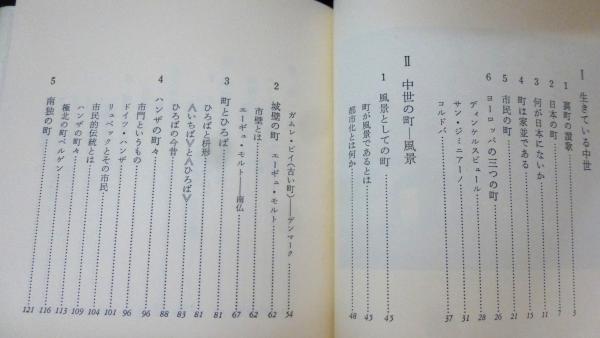 I 生きている中世
1 裏町の讃歌 3
2 日本の町 7
3 何が日本にないか 11
4 町は家並である 15
5 市民の町 21
6 ヨーロッパの三つの町 26
ディンケルスビュール 28
サン・ジミニアーノ 31
コルドバ 37
II 中世の町—風景
1 風景としての町 45
町が風景であるとは 45
都市化とは何か 48
ガムレ・ビイ《古い町》——デンマーク 54
2 城壁の町 エーギュ・モルト 62
市壁とは 62
エーギュ・モルト——南仏 67
3 町とひろば 81
ひろばと枡形 81
《いちば》と《ひろば》 83
ひろばの今昔 88
4 ハンザの町々 96
市門というもの 96
ドイツ・ハンザ 101
リュベックとその市民 104
市民的伝統とは 109
ハンザの町々
極北の町ベルゲン 113
5 南独の町 121
116